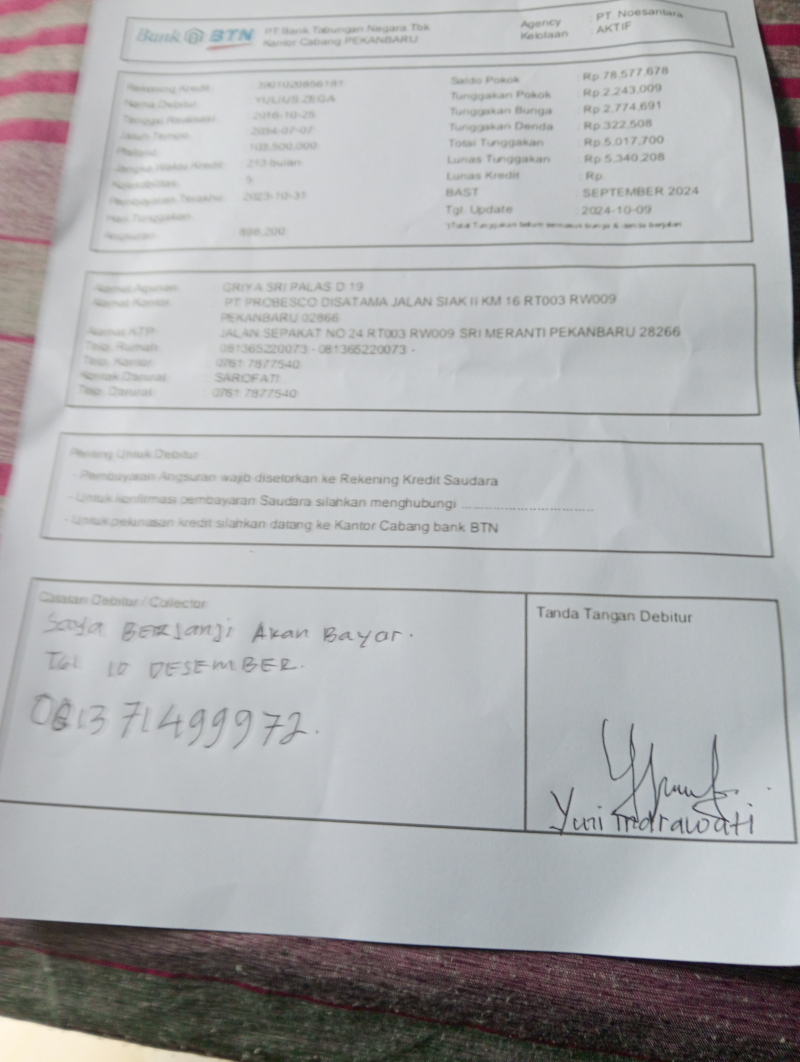 Bank BTN
PT Bank Tabungan Negara Tbk
Kantor Cabang PEKANBARU
Agency : PT. Noesantara
Kelolaan : AKTIF
Rekening Kredit
Nama Debitur : YULIUS ZEGA
Tanggal Realisasi : 2016-10-25
Jatuh Tempo : 2034-07-07
Plafond
Jangka Waktu Kredit : 213 bulan
Kolektibilitas : 5
Pembayaran Terakhir : 2023-10-31
Hari Tunggakan
Angsuran
Saldo Pokok : Rp.78,577,678
Tunggakan Pokok : Rp.2,243,009
Tunggakan Bunga : Rp.2,774,691
Tunggakan Denda : Rp.322,508
Total Tunggakan : Rp.5,017,700
Lunas Tunggakan : Rp.5,340,208
Lunas Kredit : Rp.
BAST : SEPTEMBER 2024
Tgl. Update : 2024-10-09
*)Total Tunggakan belum termasuk bunga & denda berjalan
Alamat Agunan : GRIYA SRI PALAS D 19
Alamat Kantor : PT PROBESCO DISATAMA JALAN SIAK II KM 16 RT003 RW009
PEKANBARU 02866
Alamat KTP : JALAN SEPAKAT NO 24 RT003 RW009 SRI MERANTI PEKANBARU 28266
Telp. Rumah : 081365220073 - 081365220073 -
Telp. Kantor : 0761 7877540
Kontak Darurat : SAROFATI
Telp. Darurat : 0761 7877540
Penting Untuk Debitur
- Pembayaran Angsuran wajib disetorkan ke Rekening Kredit Saudara
- Untuk konfirmasi pembayaran Saudara silahkan menghubungi ................................
- Untuk pelunasan kredit silahkan datang ke Kantor Cabang bank BTN
Catatan Debitur / Collector
Saya BERJanji Akan Bayar.
TGL 10 DESEMBER.
081371499972.
Tanda Tangan Debitur
Yuni Indrawati